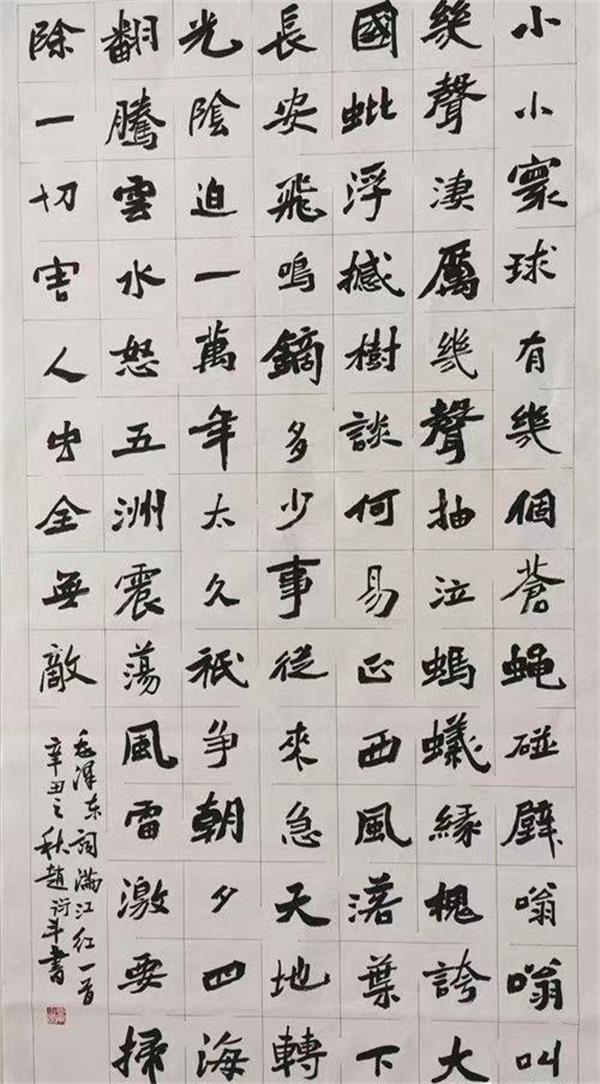 小小寰球有幾個蒼蠅碰壁嗡嗡叫
幾聲淒厲幾聲抽泣螞蟻緣槐誇大
國蚍浮撼樹談何易正西風落葉下
長安飛鳴鏑多少事從來急天地轉
光陰迫一萬年太久祇爭朝夕四海
翻騰雲水怒五洲震蕩風雷激要掃
除一切害人虫全無敵
毛澤东詞滿江红一首
辛丑之秋趙衍斗書